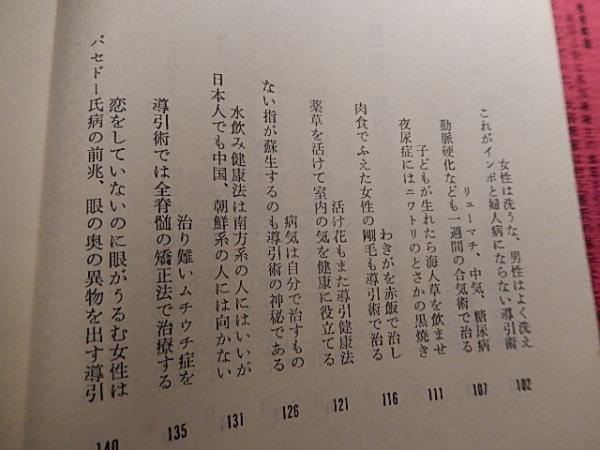 女性は洗うな、男性はよく洗え
これがインポと婦人病にならない導引術
102
リューマチ、中気、糖尿病
動脈硬化なども一週間の合気術で治る
107
子どもが生れたら海人草を飲ませ
夜尿症にはニワトリのとさかの黒焼き
111
わきがを赤飯で治し
肉食でふえた女性の剛毛も導引術で治る
116
活け花もまた導引健康法
薬草を活けて室内の気を健康に役立てる
121
病気は自分で治すもの
ない指が蘇生するのも導引術の神秘である
126
水飲み健康法は南方系の人にはいいが
日本人でも中国、朝鮮系の人には向かない
131
治り難いムチウチ症を
導引術では全脊髄の矯正法で治療する
135
恋をしていないのに眼がうるむ女性は
バセドー氏病の前兆、眼の奥の異物を出す導引
140